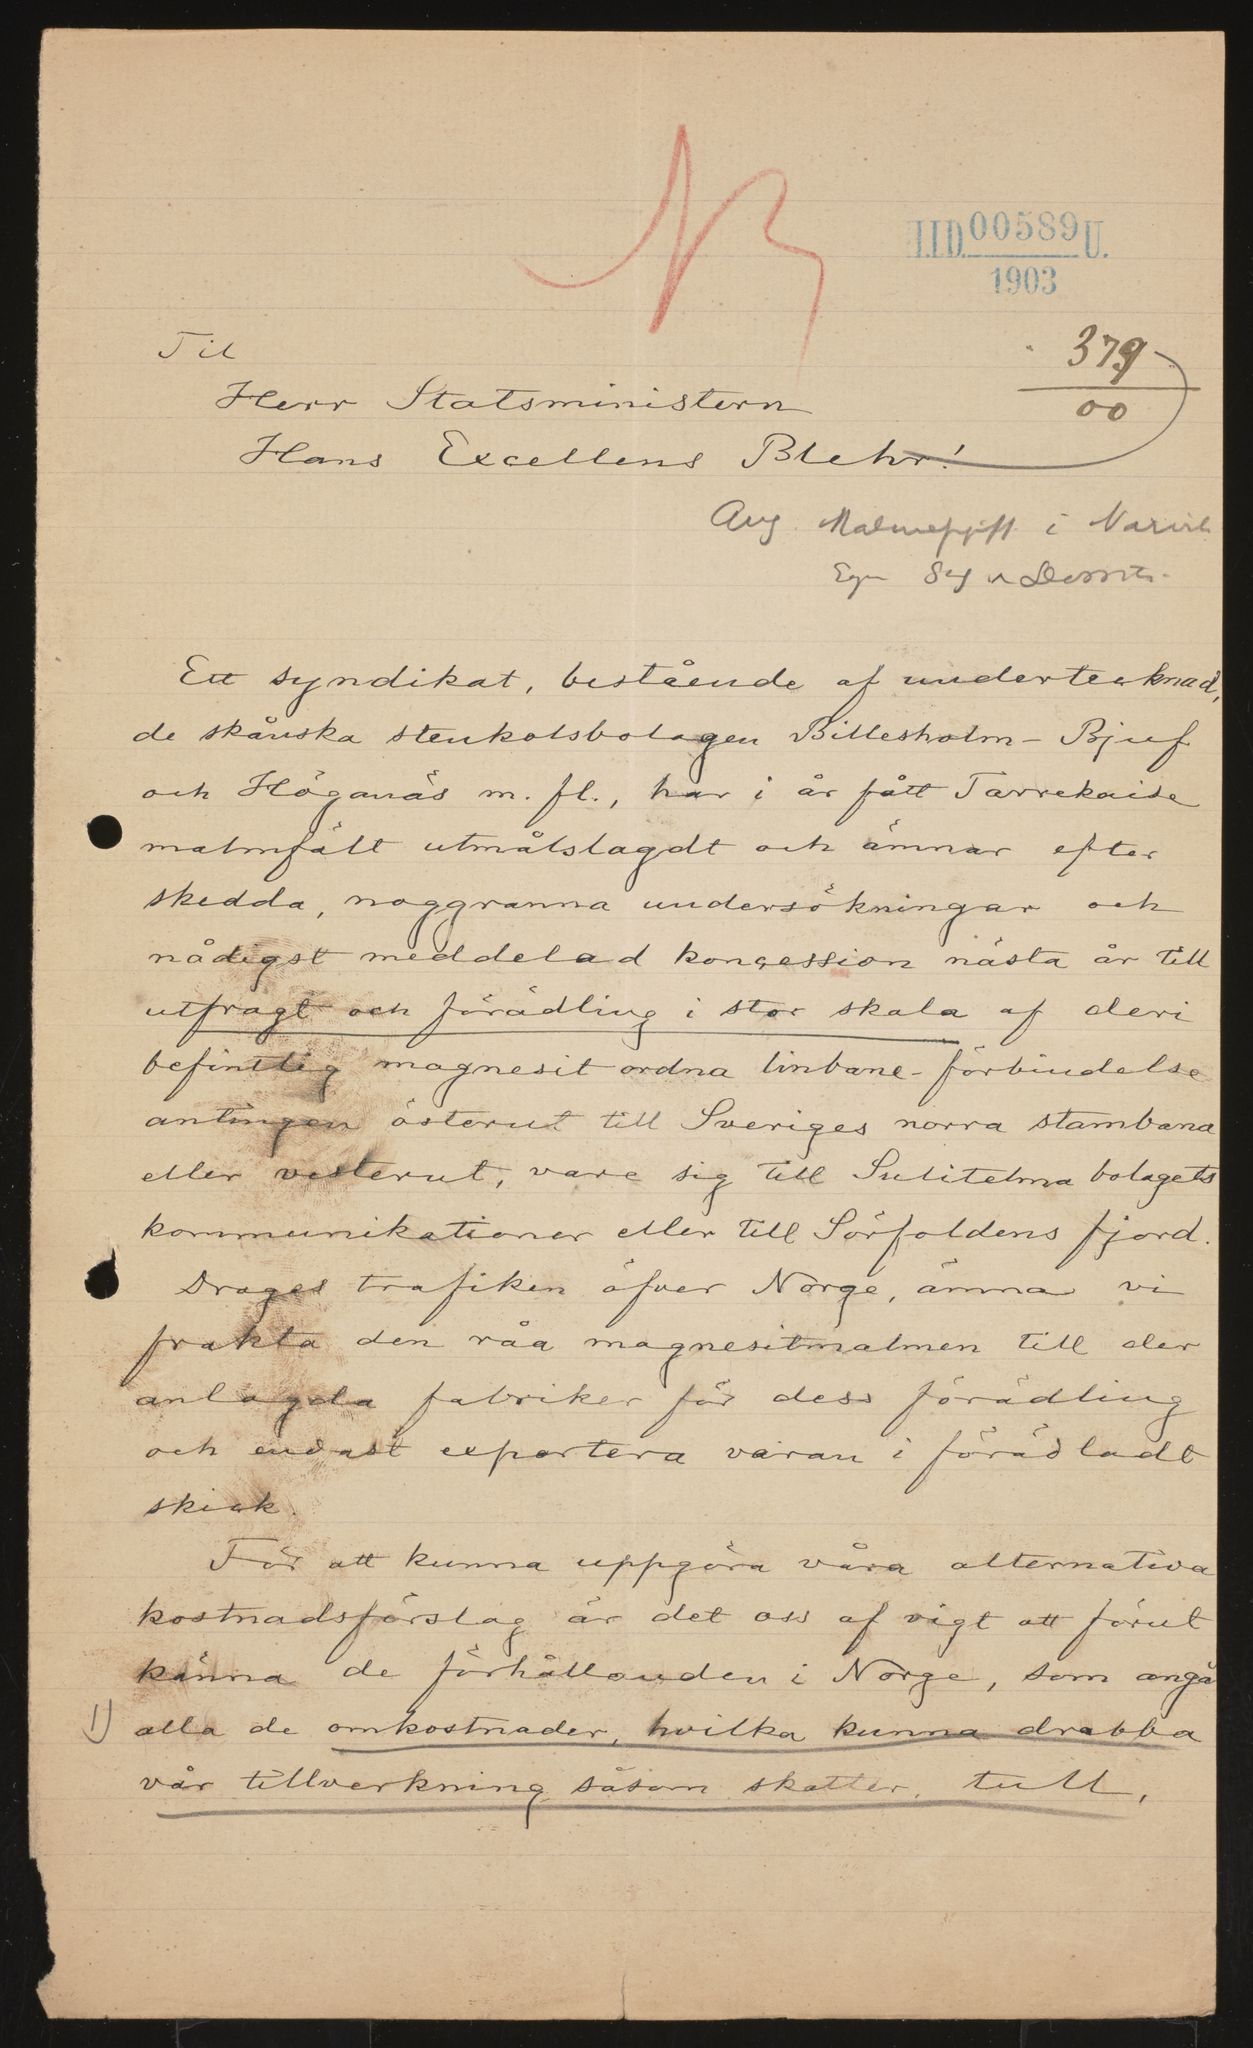 I.I.D. 00589 U.
1903
379
00
Til
Herr Statsministern
Hans Excellens Blehr!
i
Ett syndikat, bestående af undertecknad,
de skånska stenkolsbolagen Billesholm - Bjuf
och Höganäs m. fl., har i år fått Tarrekaise
malmfält utmålslagdt och ämnar efter
skedda, noggranna undersökningar och
nådigst meddelad koncession nästa år till
utfragt och förädling i stor skala af deri
befintlig magnesit ordna linbane-förbindelse
antingen österut till Sveriges norra stambana
eller vesterut, vare sig till Sulitelma bolagets
kommunikationer eller till Sörfoldens fjord.
Drages trafiken öfver Norge, ämna vi
frakta den råa magnesitmalmen till der
anlagda fabriker för dess förädling
och endast exportera varan i förädladt
skick.
För att kunna uppgöra våra alternativa
kostnadsförslag är det oss af vigt att förut
känna de förhållanden i Norge, som angå
1) alla de omkostnader, hvilka kunna drabba
vår tillverkning såsom skatter, tull,